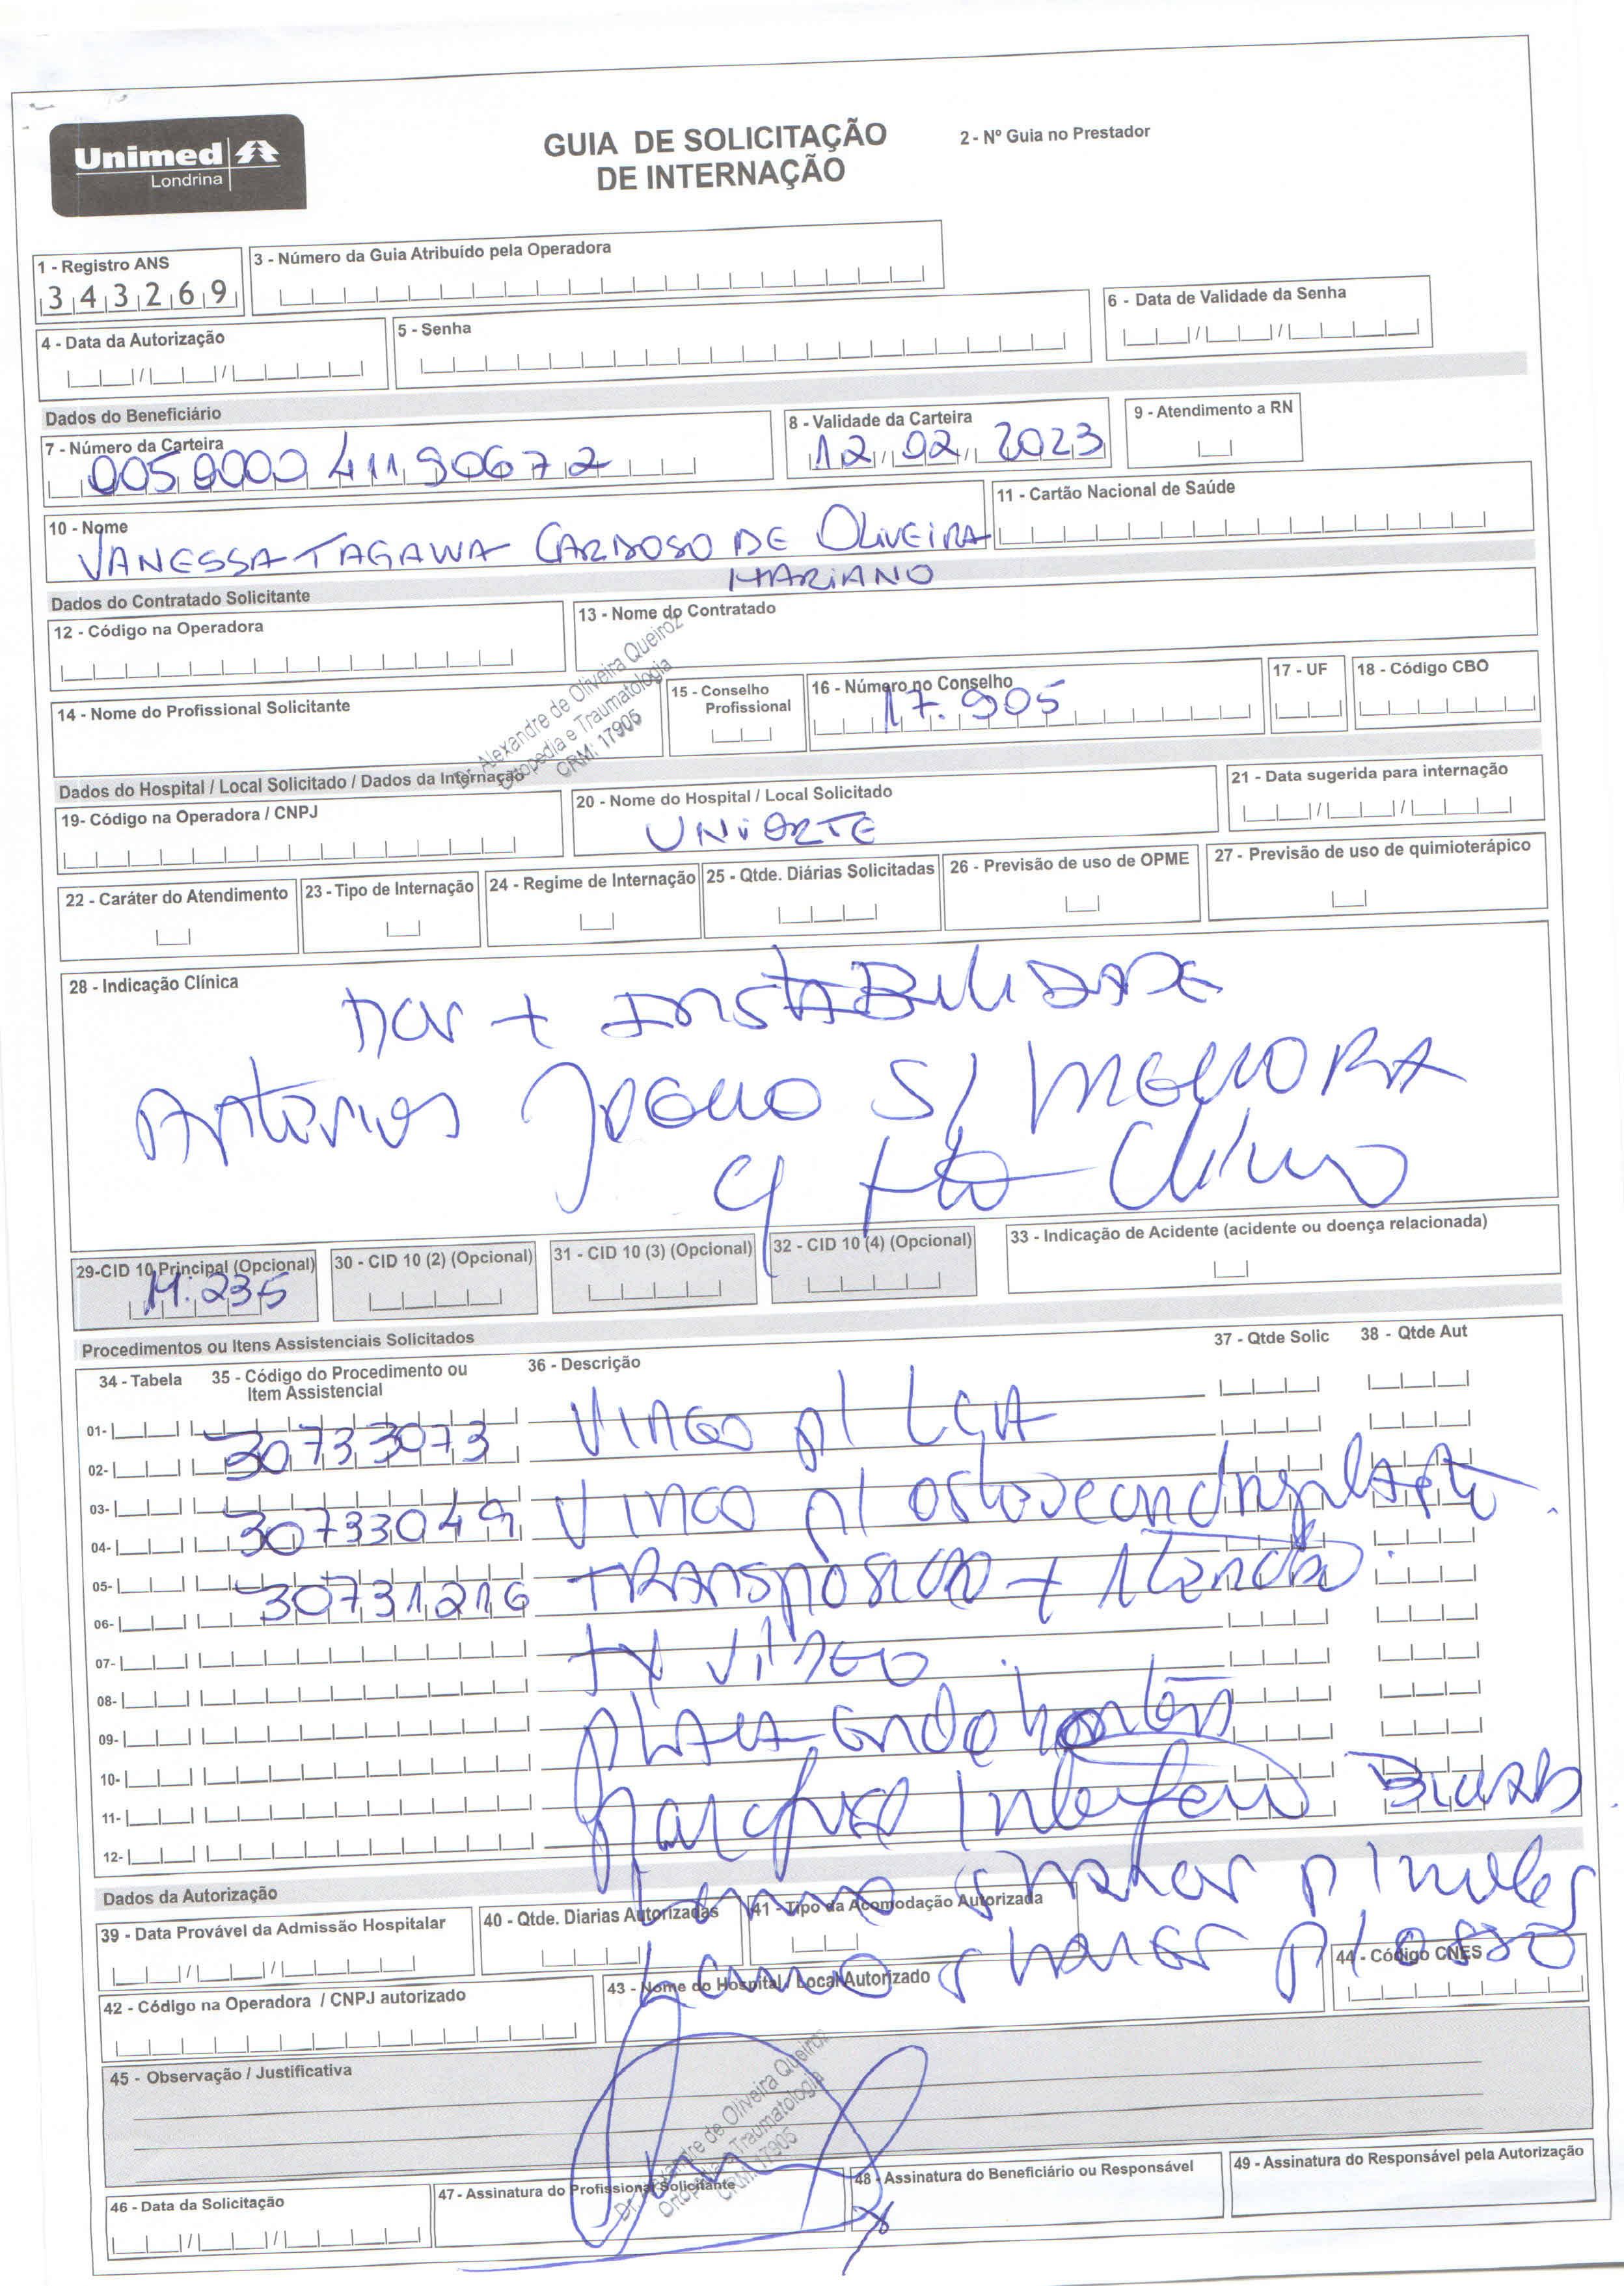 Unimed
Londrina
GUIA DE SOLICITAÇÃO
DE INTERNAÇÃO
2 - Nº Guia no Prestador
1 - Registro ANS
343269
3 - Número da Guia Atribuído pela Operadora
4 - Data da Autorização
5 - Senha
6 - Data de Validade da Senha
Dados do Beneficiário
7 - Número da Carteira
005000041190672
8 - Validade da Carteira
12 02 2023
9 - Atendimento a RN
10 - Nome
VANESSA TAGAWA CARDOSO DE OLIVEIRA
MARIANO
11 - Cartão Nacional de Saúde
Dados do Contratado Solicitante
12 - Código na Operadora
13 - Nome do Contratado
14 - Nome do Profissional Solicitante
Dr. Alexandre de Oliveira Queiroz
Ortopedia e Traumatologia
CRM: 17905
15 - Conselho
Profissional
16 - Número no Conselho
17.905
17 - UF
18 - Código CBO
Dados do Hospital / Local Solicitado / Dados da Internação
19- Código na Operadora / CNPJ
20 - Nome do Hospital / Local Solicitado
UNIORTE
21 - Data sugerida para internação
22 - Caráter do Atendimento
23 - Tipo de Internação
24 - Regime de Internação
25 - Qtde. Diárias Solicitadas
26 - Previsão de uso de OPME
27 - Previsão de uso de quimioterápico
28 - Indicação Clínica
DOR + INSTABILIDADE
JOELHO S/ MELHORA
29-CID 10 Principal (Opcional)
M:235
30 - CID 10 (2) (Opcional)
31 - CID 10 (3) (Opcional)
32 - CID 10 (4) (Opcional)
33 - Indicação de Acidente (acidente ou doença relacionada)
Procedimentos ou Itens Assistenciais Solicitados
34 - Tabela
35 - Código do Procedimento ou
Item Assistencial
36 - Descrição
37 - Qtde Solic
38 - Qtde Aut
01-
30733073 VIDEO p/ LCA
02-
03-
30733049 VIDEO p/
04-
05-
30731216 TRANSPOSICAO +
06-
07-
VIDEO
08-
09-
PLACA
10-
11-
12-
Dados da Autorização
39 - Data Provável da Admissão Hospitalar
40 - Qtde. Diarias Autorizadas
41 - Tipo da Acomodação Autorizada
42 - Código na Operadora / CNPJ autorizado
43 - Nome do Hospital / Local Autorizado
44 - Código CNES
45 - Observação / Justificativa
Dr. Alexandre de Oliveira Queiroz
Ortopedia e Traumatologia
CRM: 17905
46 - Data da Solicitação
47 - Assinatura do Profissional Solicitante
48 - Assinatura do Beneficiário ou Responsável
49 - Assinatura do Responsável pela Autorização